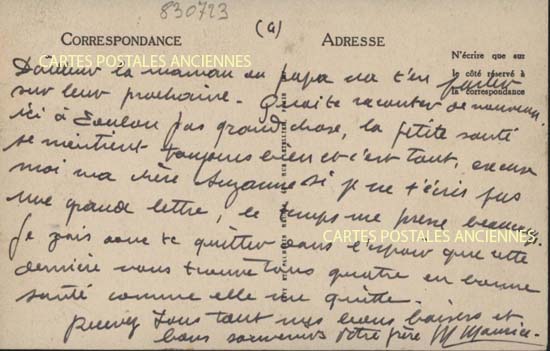 830723
(4)
CORRESPONDANCE
ADRESSE
CARTES POSTALES ANCIENNES
N'écrire que sur
le côté réservé à
la correspondance
D'ailleur la maman ou papa va t'en parler
sur leur prochaine. Quoi te raconter de nouveau
ici à Toulon pas grand chose, la petite santé
se maintient toujours bien et c'est tout, excuse
moi ma chère Suzanne si je ne t'écris pas
une grande lettre, le temps me presse beaucoup.
CARTES POSTALES ANCIENNES
Je vais donc te quitter dans l'espoir que cette
dernière vous trouve tous quatre en bonne
santé comme elle me quitte.
Recevez tous tout mes bons baisers et
bons souvenirs Votre frère Maurice